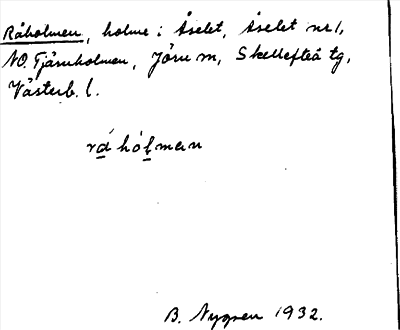 Råholmen, holme i Åselet, Åselet nr 1,
NO. Tjärnholmen, Jörn m, Skellefteå tg,
Västerb. l.
rá̱ hóḻmɛn
B. Nygren 1932.